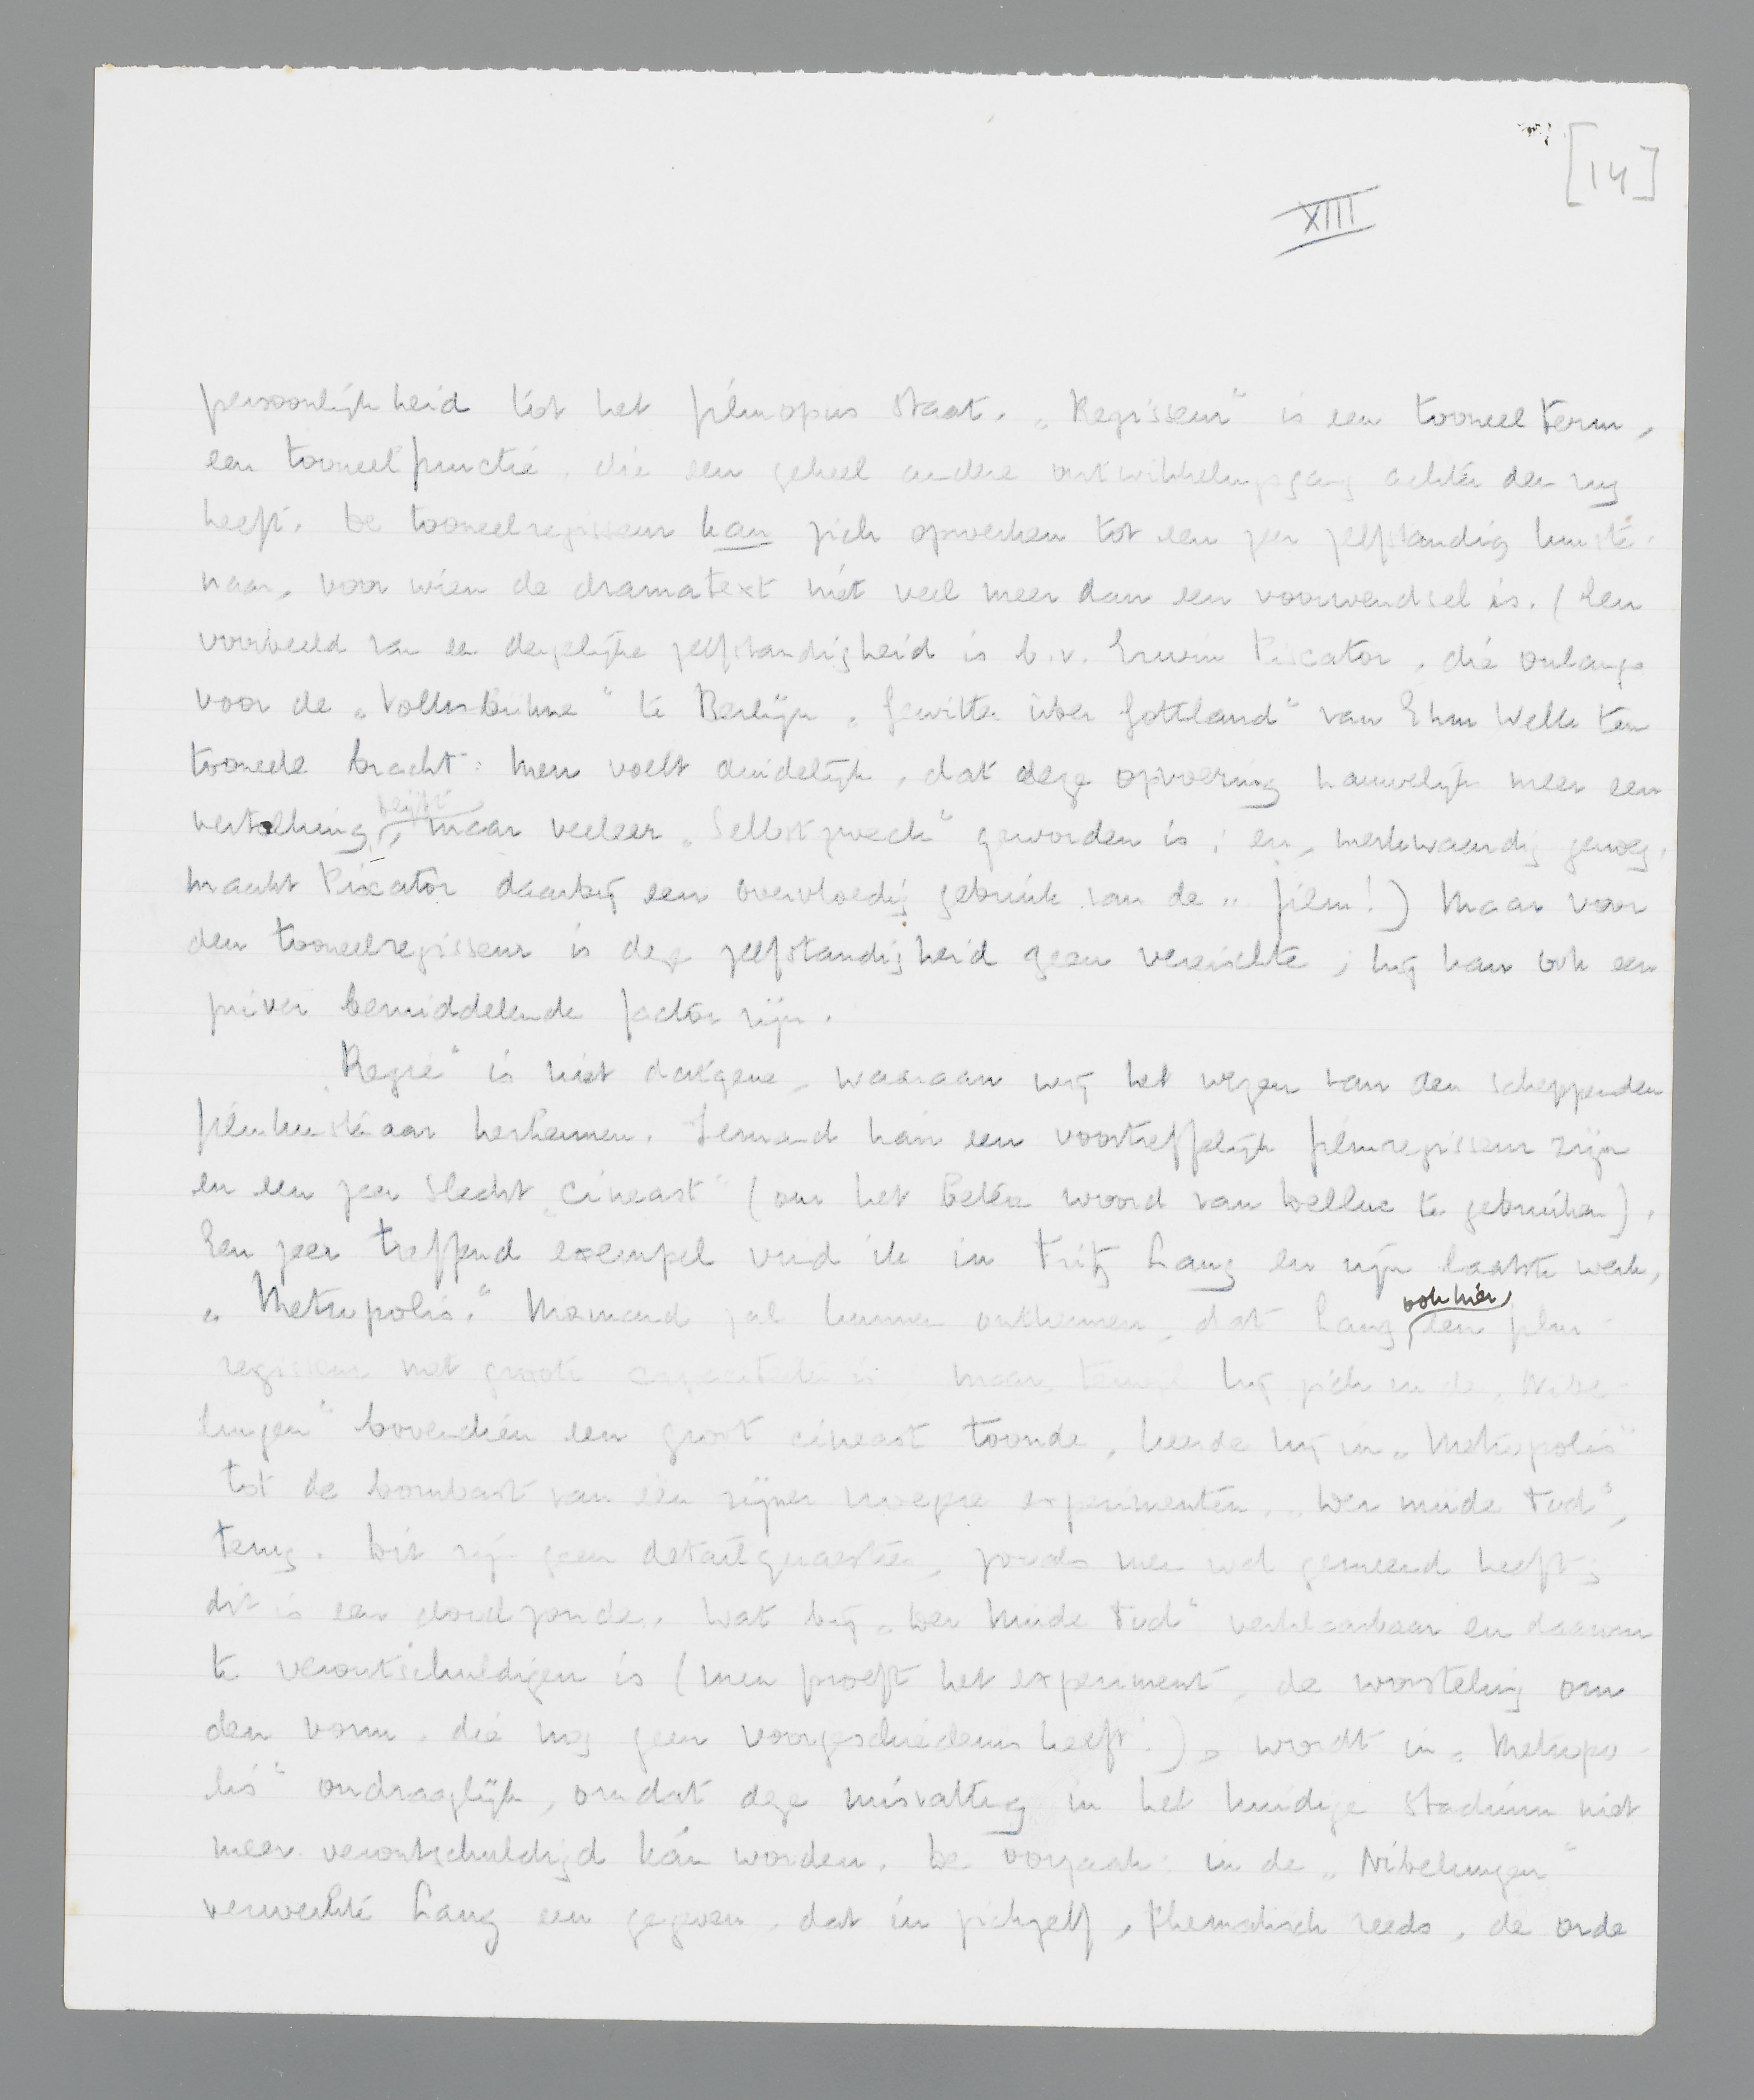 [14]
XIII
persoonlijkheid tot het filmopus staat. „Regisseur" is een tooneelterm,
een tooneelfunctie, die een geheel andere ontwikkelingsgang achter den rug
heeft. De tooneelregisseur kan zich opwerken tot een zeer zelfstandig kunste-
naar, voor wien de dramatext niet veel meer dan een voorwendsel is. (Een
voorbeeld van een dergelijke zelfstandigheid is b.v. Erwin Piscator, die onlangs
voor de „Volksbühne" te Berlijn „Gewitter über Gottland" van Ehm Welk ten
tooneele bracht: men voelt duidelijk, dat deze opvoering nauwelijks meer een
vertolking blijft, maar veeleer „Selbstzweck" geworden is; en, merkwaardig genoeg,
maakt Piscator daarbij een overvloedig gebruik van de .. film!) Maar voor
den tooneelregisseur is deze zelfstandigheid geen vereischte; hij kan ook een
zuiver bemiddelende factor zijn.
„Regie" is niet datgene, waaraan wij het wezen van den scheppenden
filmkunstenaar herkennen. Iemand kan een voortreffelijk filmregisseur zijn
en een zeer slecht „cineast" (om het betere woord van Delluc te gebruiken).
Een zeer treffend exempel vind ik in Fritz Lang en zijn laatste werk,
„Metropolis." Niemand zal kunnen ontkennen, dat Lang ook hier een film-
regisseur met groote capaciteiten is; maar, terwijl hij zich in de „Nibe-
lungen" bovendien een groot cineast toonde, keerde hij in „Metropolis"
tot de bombast van één zijner vroegere experimenten, „Der müde Tod",
terug. Dit zijn geen detailquaesties, zooals men wel gemeend heeft;
dit is een doodzonde. Wat bij „Der müde Tod" verklaarbaar en daarom
te verontschuldigen is (men proeft het experiment, de worsteling om
den vorm, die nog geen voorgeschiedenis heeft!), wordt in „Metropo-
lis" ondraaglijk, omdat deze misvatting in het huidige stadium niet
meer verontschuldigd kán worden. De oorzaak: in de „Nibelungen"
verwerkte Lang een gegeven, dat in zichzelf, thematisch reeds, de orde